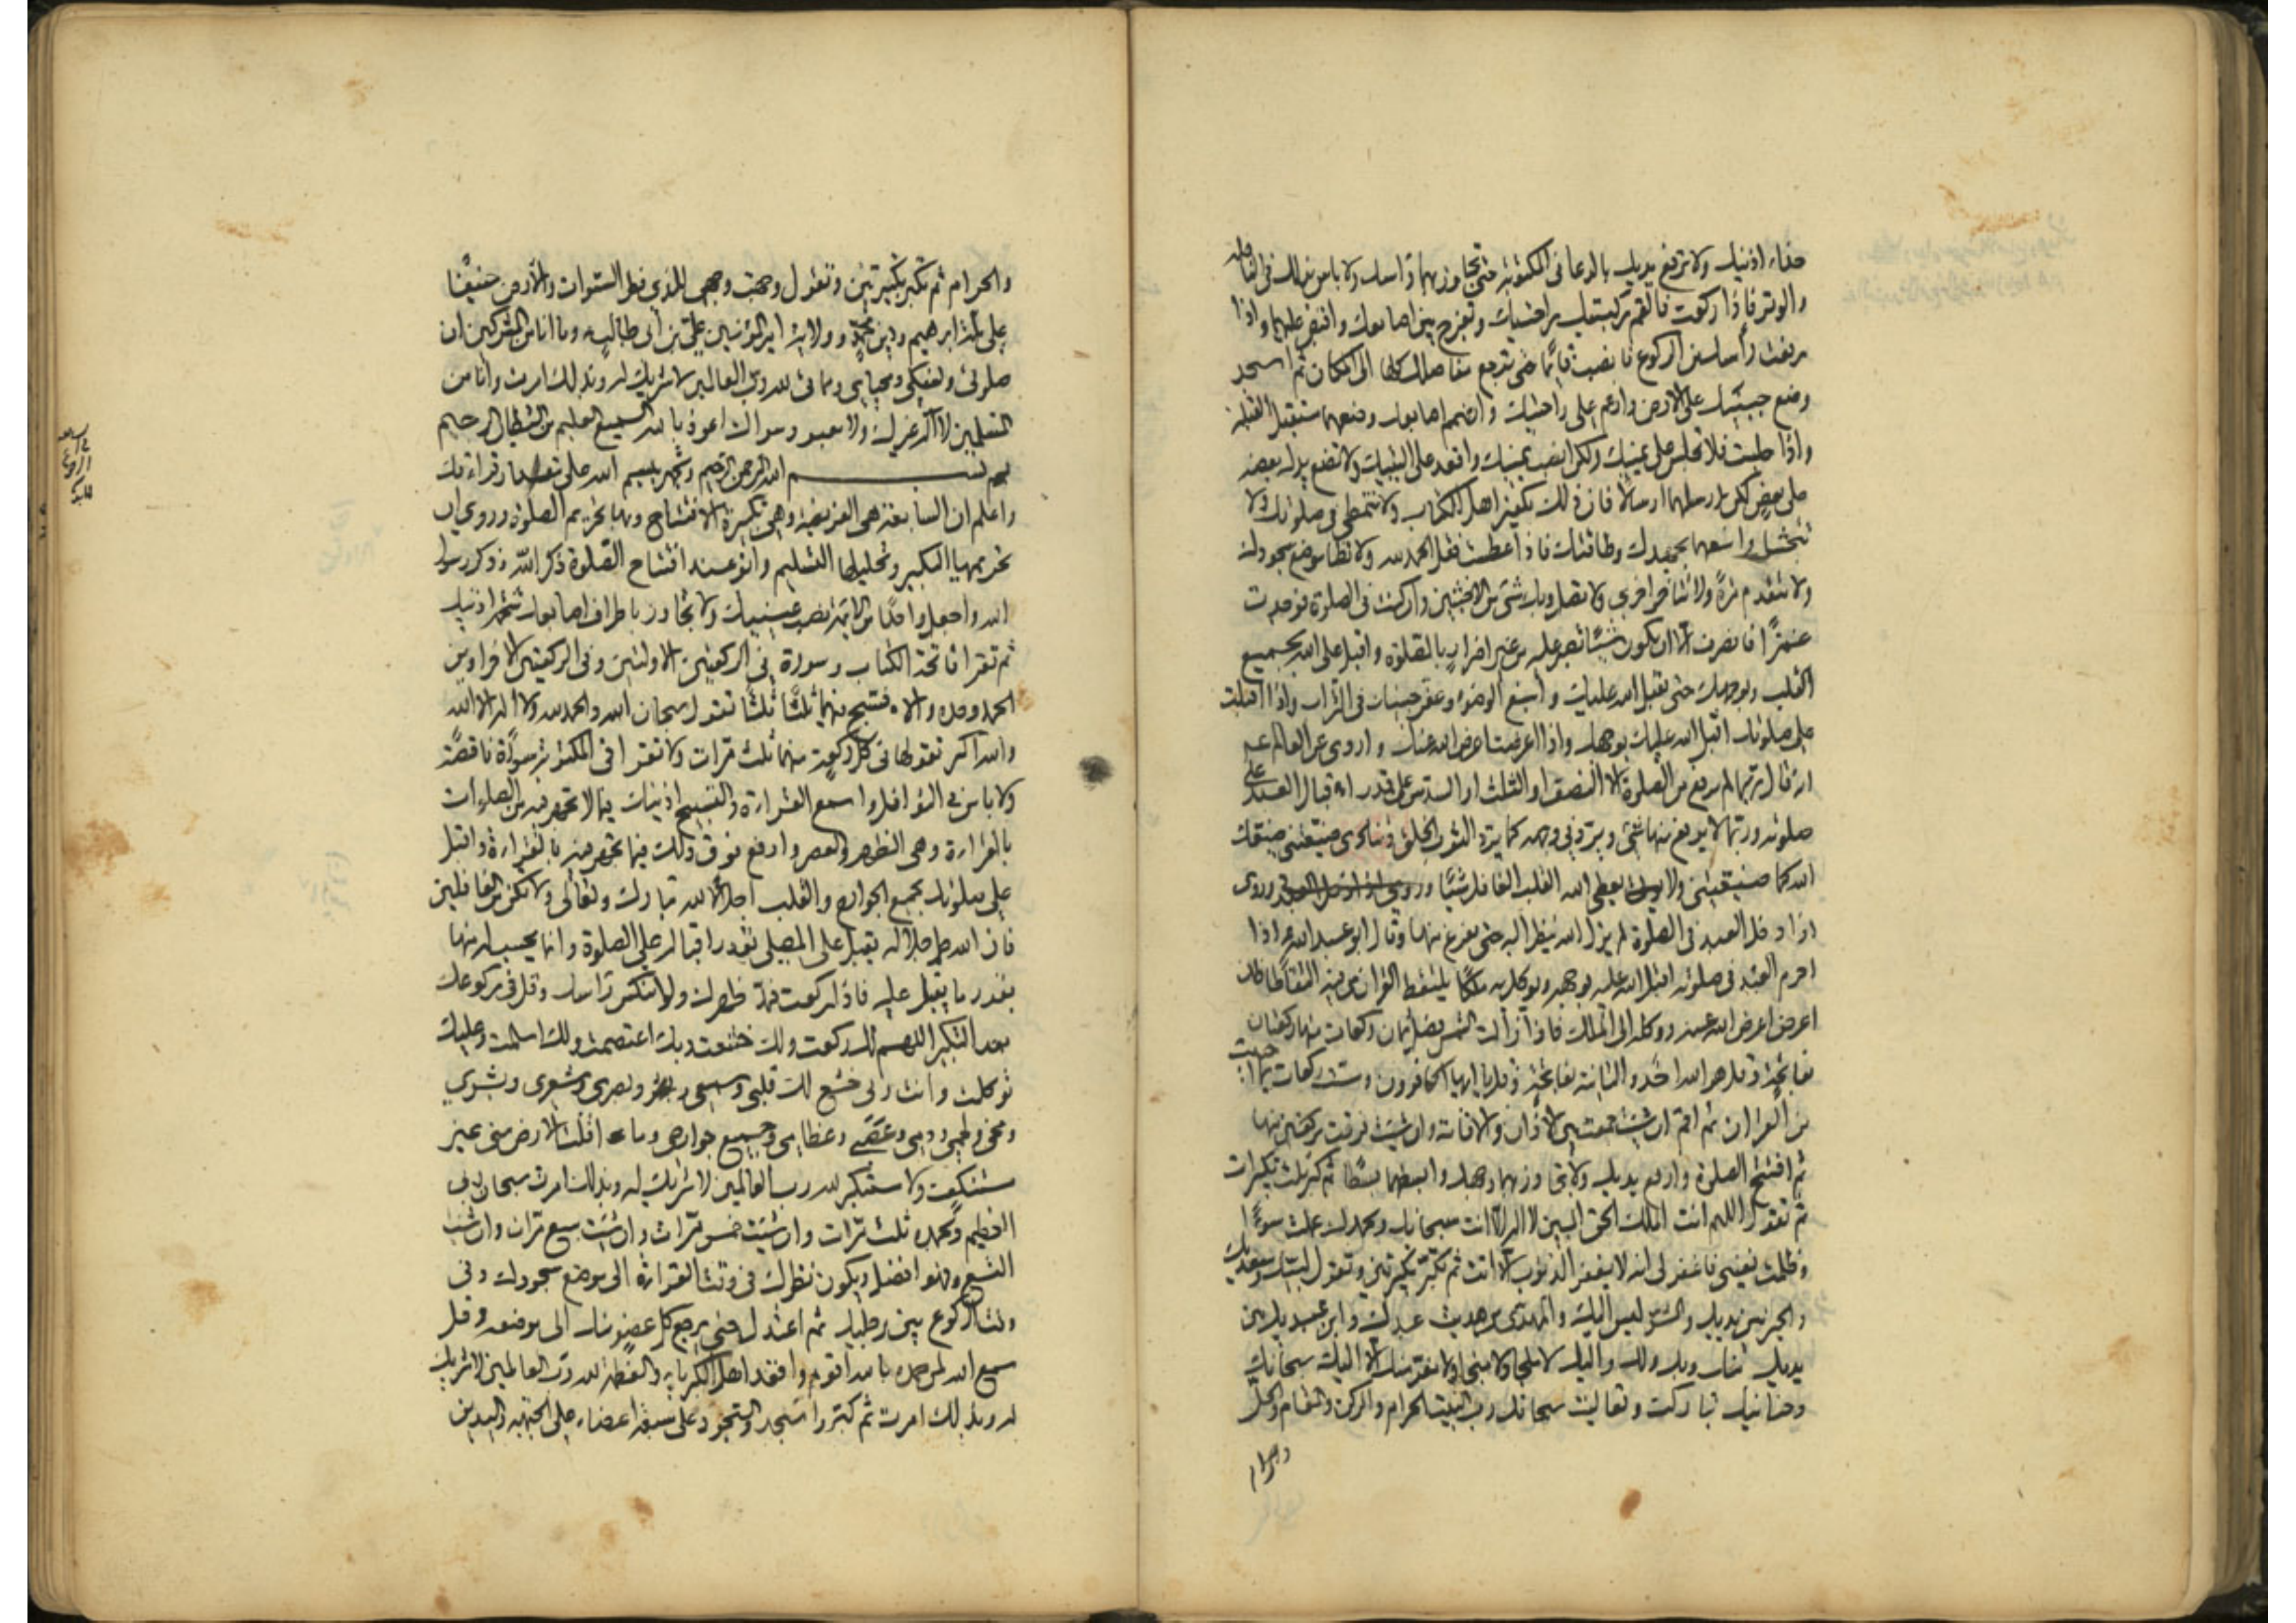 حذاء اذنيك ولا ترفع يديك بالدعا فى المكتوبة حتى تجاوز بهما راسك ولا باس بذلك فى النافلة
والوتر فاذا ركعت فالقم ركبتيك براحتيك وتفرج بين اصابعك واقبض عليهما واذا
رفعت رأسك من الركوع فانصب قائما حتى ترجع مفاصلك كلها الى المكان ثم اسجد
وضع جبينك على الارض وارغم على راحتيك واضمم اصابعك وضعهما مستقبل القبلة
واذا جلست فلا تجلس على يمينك ولكن انصب يمينك واقعد على اليتيك ولا تضع يدك بعضه
على بعض لكن ارسلهما ارسالا فان ذلك تكفير اهل الكتاب ولا تتمطى فى صلوتك ولا
تتجشأ وامنعهما بجهدك وطاقتك فاذا عطست فقل الحمد لله ولا تطا موضع سجودك
ولا تتقدم مرة ولا تتاخر اخرى ولا تصل وبك شئ من الاخبثين وان كنت فى الصلوة فوجدت
غمزا فانصرف الا ان يكون شيئا تصبر عليه من غير اضرار بالصلوة واقبل على الله بجميع
القلب وبوجهك حتى يقبل الله عليك واسبغ الوضوء وعفر جبينك فى التراب واذا اقبلت
على صلوتك اقبل الله عليك بوجهه واذا اعرضت اعرض الله عنك واروى عن العالم ع
انه قال ربما لم يرفع من الصلوة الا النصف او الثلث او السدس على قدر اقبال العبد على
صلوته وربما لا يرفع منها شئ ويرد فى وجهه كما يرد الثوب الخلق وتنادى ضيعتنى ضيعك
الله كما ضيعتنى ولا يعطى الله القلب الغافل شيئا وروى اذا دخل العبد وروى
اذا دخل العبد فى الصلوة لم يزل الله ينظر اليه حتى يفرغ منها وقال ابو عبد الله ع اذا
احرم العبد فى صلوته اقبل الله عليه بوجهه ويوكل به ملكا يلتقط القران من فيه التقاطا فان
اعرض اعرض الله عنه ووكله الى الملك فاذا زالت الشمس فصل ثمان ركعات منها ركعتان
بفاتحة وقل هو الله احد والثانية بفاتحة وقل يا ايها الكافرون وست ركعات بما احببت
من القران ثم اقم ان شئت جمعت بين الاذان والاقامة وان شئت فرقت بركعتين منها
ثم افتتح الصلوة وارفع يديك ولا تجاوز بهما وجهك وابسطهما بسطا ثم كبر ثلث تكبيرات
ثم تقول اللهم انت الملك الحق المبين لا اله الا انت سبحانك وبحمدك عملت سوءا
وظلمت نفسى فاغفر لى انه لا يغفر الذنوب الا انت ثم تكبر تكبيرتين وتقول لبيك وسعديك
والخير بين يديك والشر ليس اليك والمهدى من هديت عبدك وابن عبديك بين
يديك منك وبك ولك واليك لا ملجا ولا منجا ولا مفر منك الا اليك سبحانك
وحنانيك تباركت وتعاليت سبحانك رب البيت الحرام والركن والمقام والحل
والحرام
والحرام ثم تكبر تكبيرتين وتقول وجهت وجهى للذى فطر السموات والارض حنيفا
على ملة ابرهيم ودين محمد وولاية امير المؤمنين على بن ابى طالب وما انا من المشركين ان
صلوتى ونسكى ومحياى ومماتى لله رب العالمين لا شريك له وبذلك امرت وانا من
المسلمين لا اله غيرك ولا معبود سواك اعوذ بالله السميع العليم من الشيطان الرجيم
بسم الله الرحمن الرحيم وتجهر ببسم الله على مقدار قراءتك
واعلم ان السابعة هى الفريضة وهى تكبيرة الافتتاح وبها تحريم الصلوة وروى ان
تحريمها التكبير وتحليلها التسليم وانو عند افتتاح الصلوة ذكر الله وذكر رسول
الله واجعل واحدا من الائمة نصب عينيك ولا تجاوز باطراف اصابعك شحمة اذنيك
ثم تقرا فاتحة الكتاب وسورة فى الركعتين الاولتين وفى الركعتين الاخراوين
الحمد وحده والا فتسبح فيهما ثلثا ثلثا تقول سبحان الله والحمد لله ولا اله الا الله
والله اكبر تقولها فى كل ركعة منهما ثلث مرات ولا تقرا فى المكتوبة سورة ناقصة
ولا باس فى النوافل واسمع القراءة والتسبيح اذنيك فيما لا تجهر فيه من الصلوات
بالقراءة وهى الظهر والعصر وارفع فوق ذلك فيما تجهر فيه بالقراءة واقبل
على صلوتك بجميع الجوارح والقلب اجلالا لله تبارك وتعالى ولا تكن من الغافلين
فان الله جل جلاله يقبل على المصلى بقدر اقباله على الصلوة وانما يحسب له منها
بقدر ما يقبل عليه فاذا ركعت فمد ظهرك ولا تنكس راسك وقل فى ركوعك
بعد التكبير اللهم لك ركعت ولك خشعت وبك اعتصمت ولك اسلمت وعليك
توكلت وانت ربى خشع لك قلبى وسمعى وبصرى وشعرى وبشرى
ومخى ولحمى ودمى وعصبى وعظامى وجميع جوارحى وما اقلت الارض منى غير
مستنكف ولا مستكبر لله رب العالمين لا شريك له وبذلك امرت سبحان ربى
العظيم وبحمده ثلث مرات وان شئت خمس مرات وان شئت سبع مرات وان شئت
التسع وهو افضل ويكون نظرك فى وقت القراءة الى موضع سجودك وفى
وقت الركوع بين رجليك ثم اعتدل حتى يرجع كل عضو منك الى موضعه وقل
سمع الله لمن حمده بالله اقوم واقعد اهل الكبرياء والعظمة لله رب العالمين لا شريك
له وبذلك امرت ثم كبر واسجد والسجود على سبعة اعضاء على الجبهة واليدين